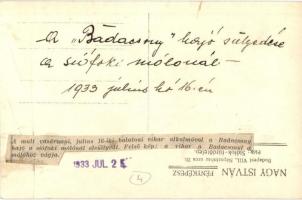 A "Badacsony" hajó sülyedése
a siófoki mólónál –
1933 július hó 16.-án
A mult vasárnapi, julius 16-iki balatoni vihar alkalmával a Badacsony
hajó a siófoki mólónál elsülyedt. Felső kép: a vihar a Badacsonyt a
mólóhoz vágja.
1933 JUL. 2
4
NAGY ISTVÁN
FÉNYKÉPÉSZ
Budapest VIII., Népszínház ucca